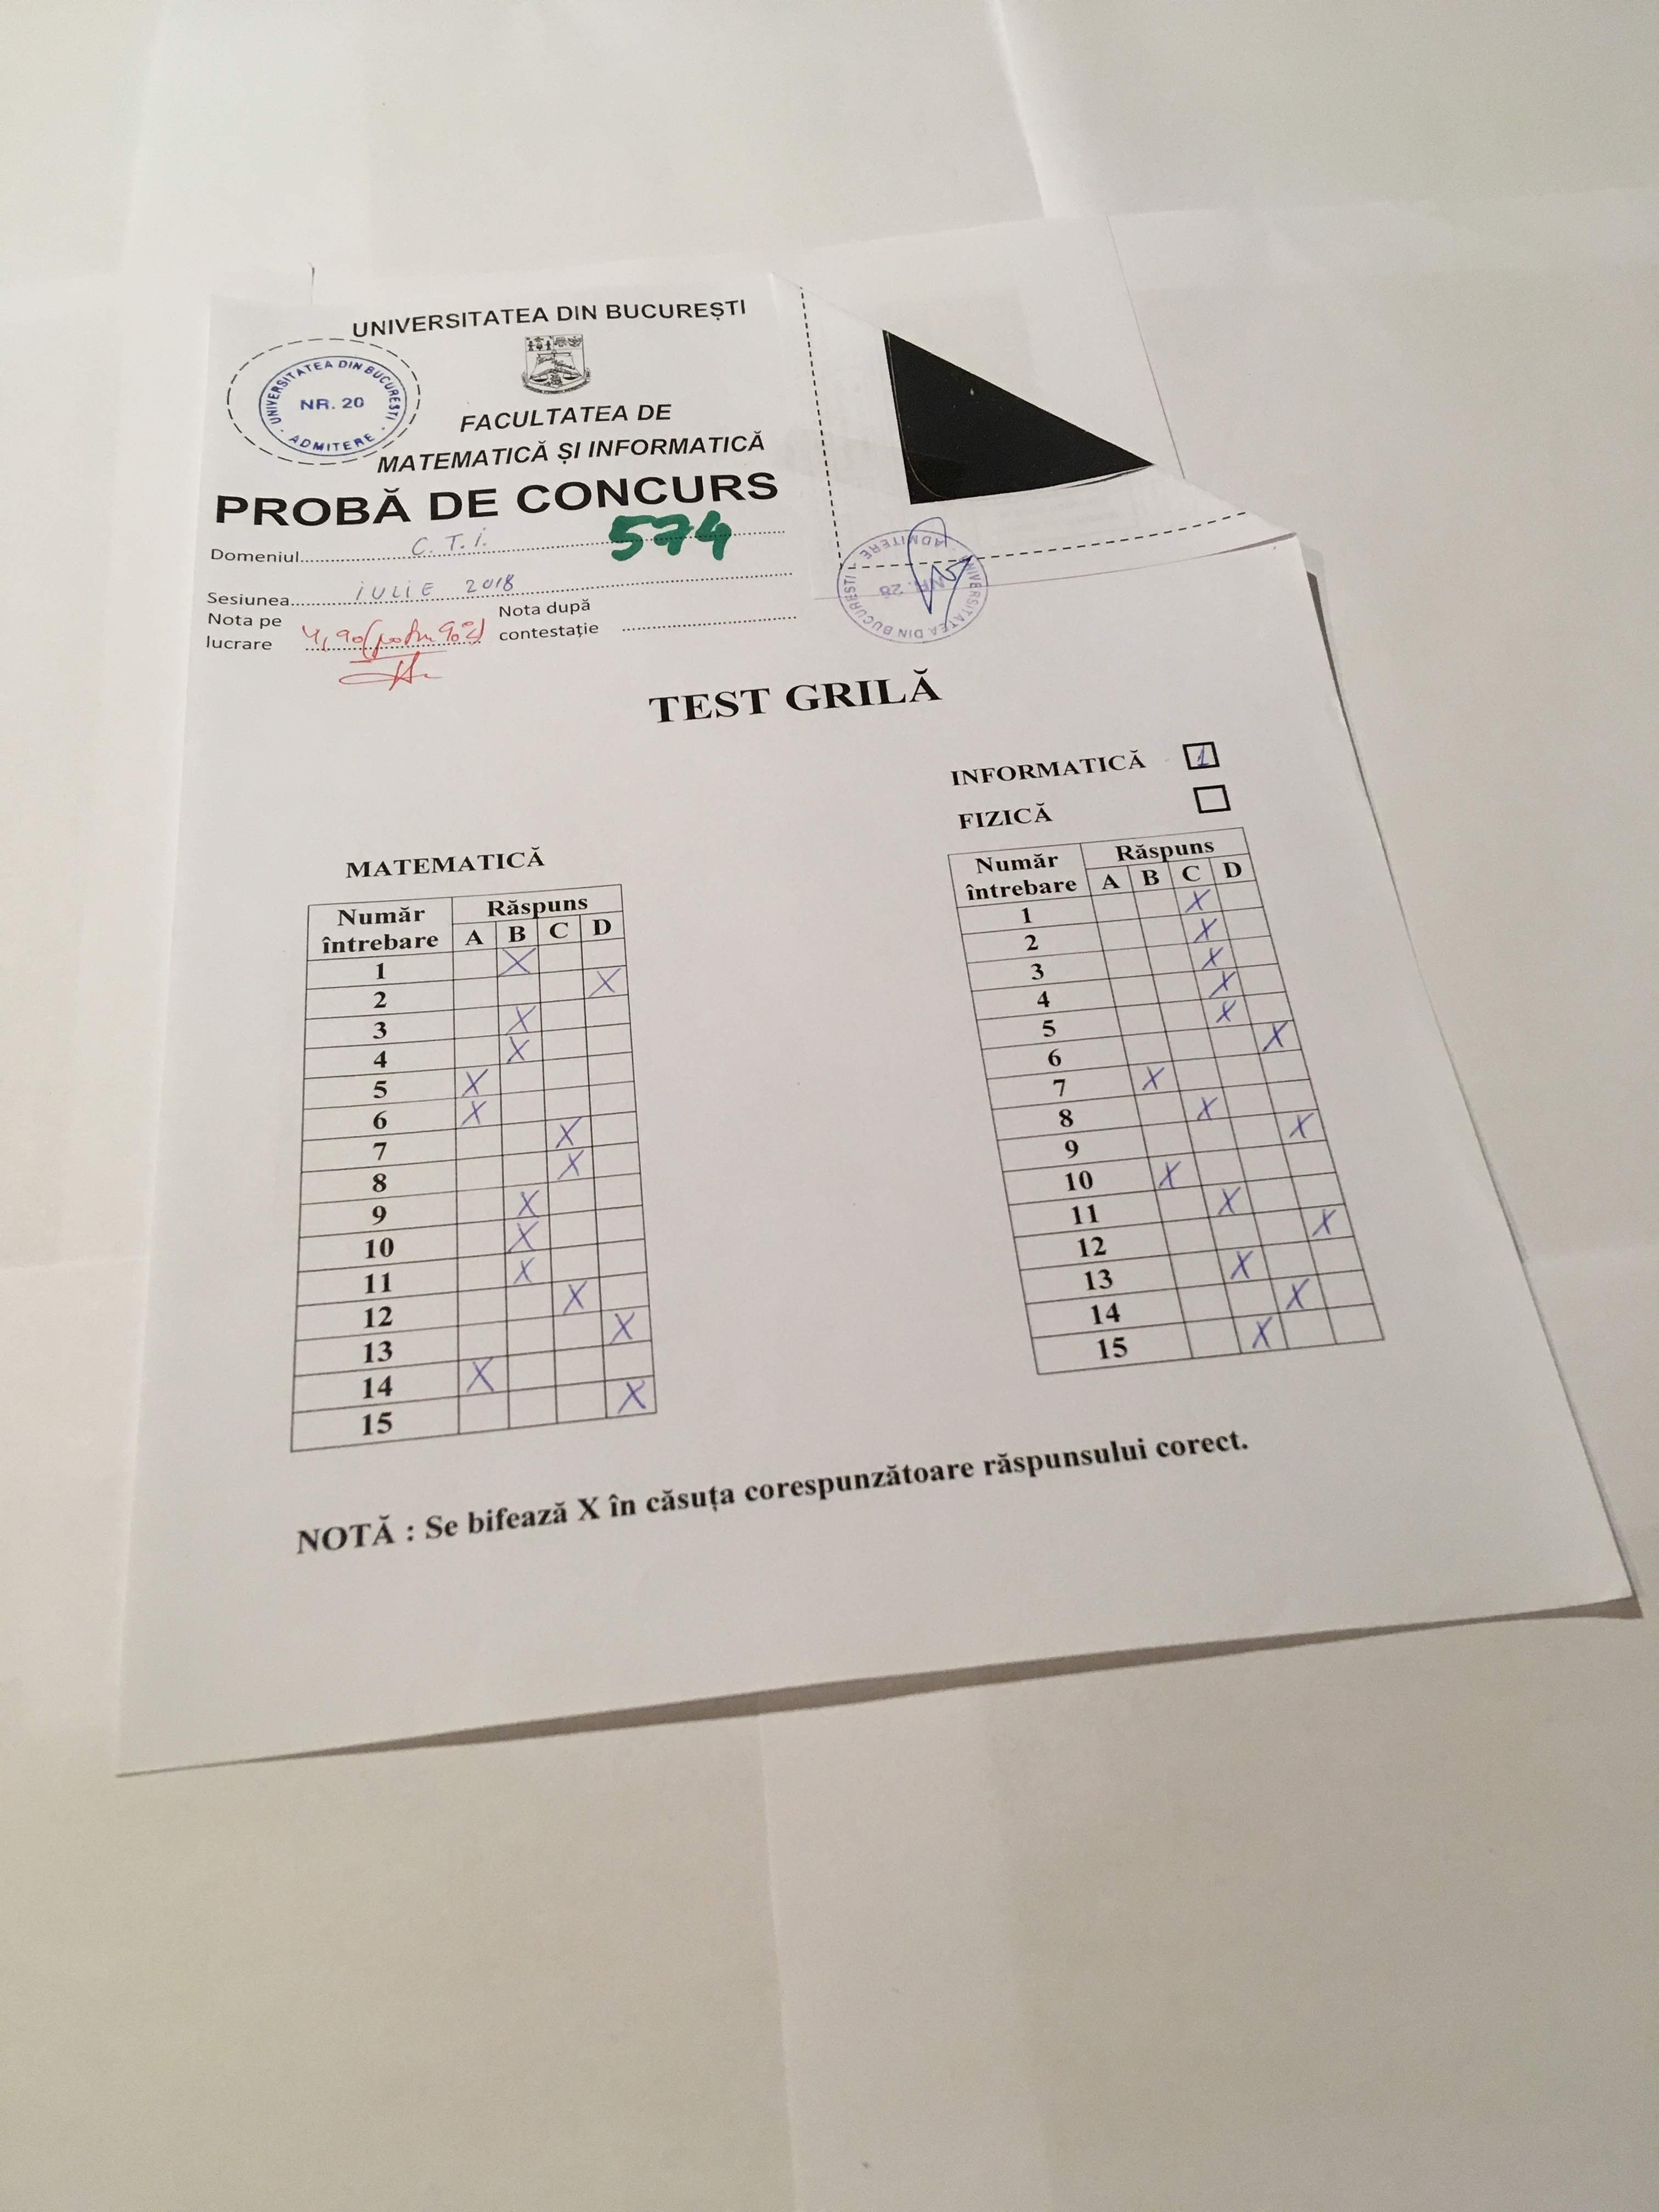 UNIVERSITATEA DIN BUCUREȘTI
UNIVERSITATEA DIN BUCUREȘTI
NR. 20
ADMITERE
FACULTATEA DE
MATEMATICĂ ȘI INFORMATICĂ
PROBĂ DE CONCURS
574
Domeniul C. T. i.
Sesiunea iULiE 2018
Nota pe lucrare 4,90
Nota după contestație
UNIVERSITATEA DIN BUCURESTI
NR. 28
ADMITERE
TEST GRILĂ
INFORMATICĂ 1
FIZICĂ
MATEMATICĂ
Număr întrebare Răspuns
A B C D
1 X
2 X
3 X
4 X
5 X
6 X
7 X
8 X
9 X
10 X
11 X
12 X
13 X
14 X
15 X
Număr întrebare Răspuns
A B C D
1 X
2 X
3 X
4 X
5 X
6 X
7 X
8 X
9 X
10 X
11 X
12 X
13 X
14 X
15 X
NOTĂ : Se bifează X în căsuța corespunzătoare răspunsului corect.